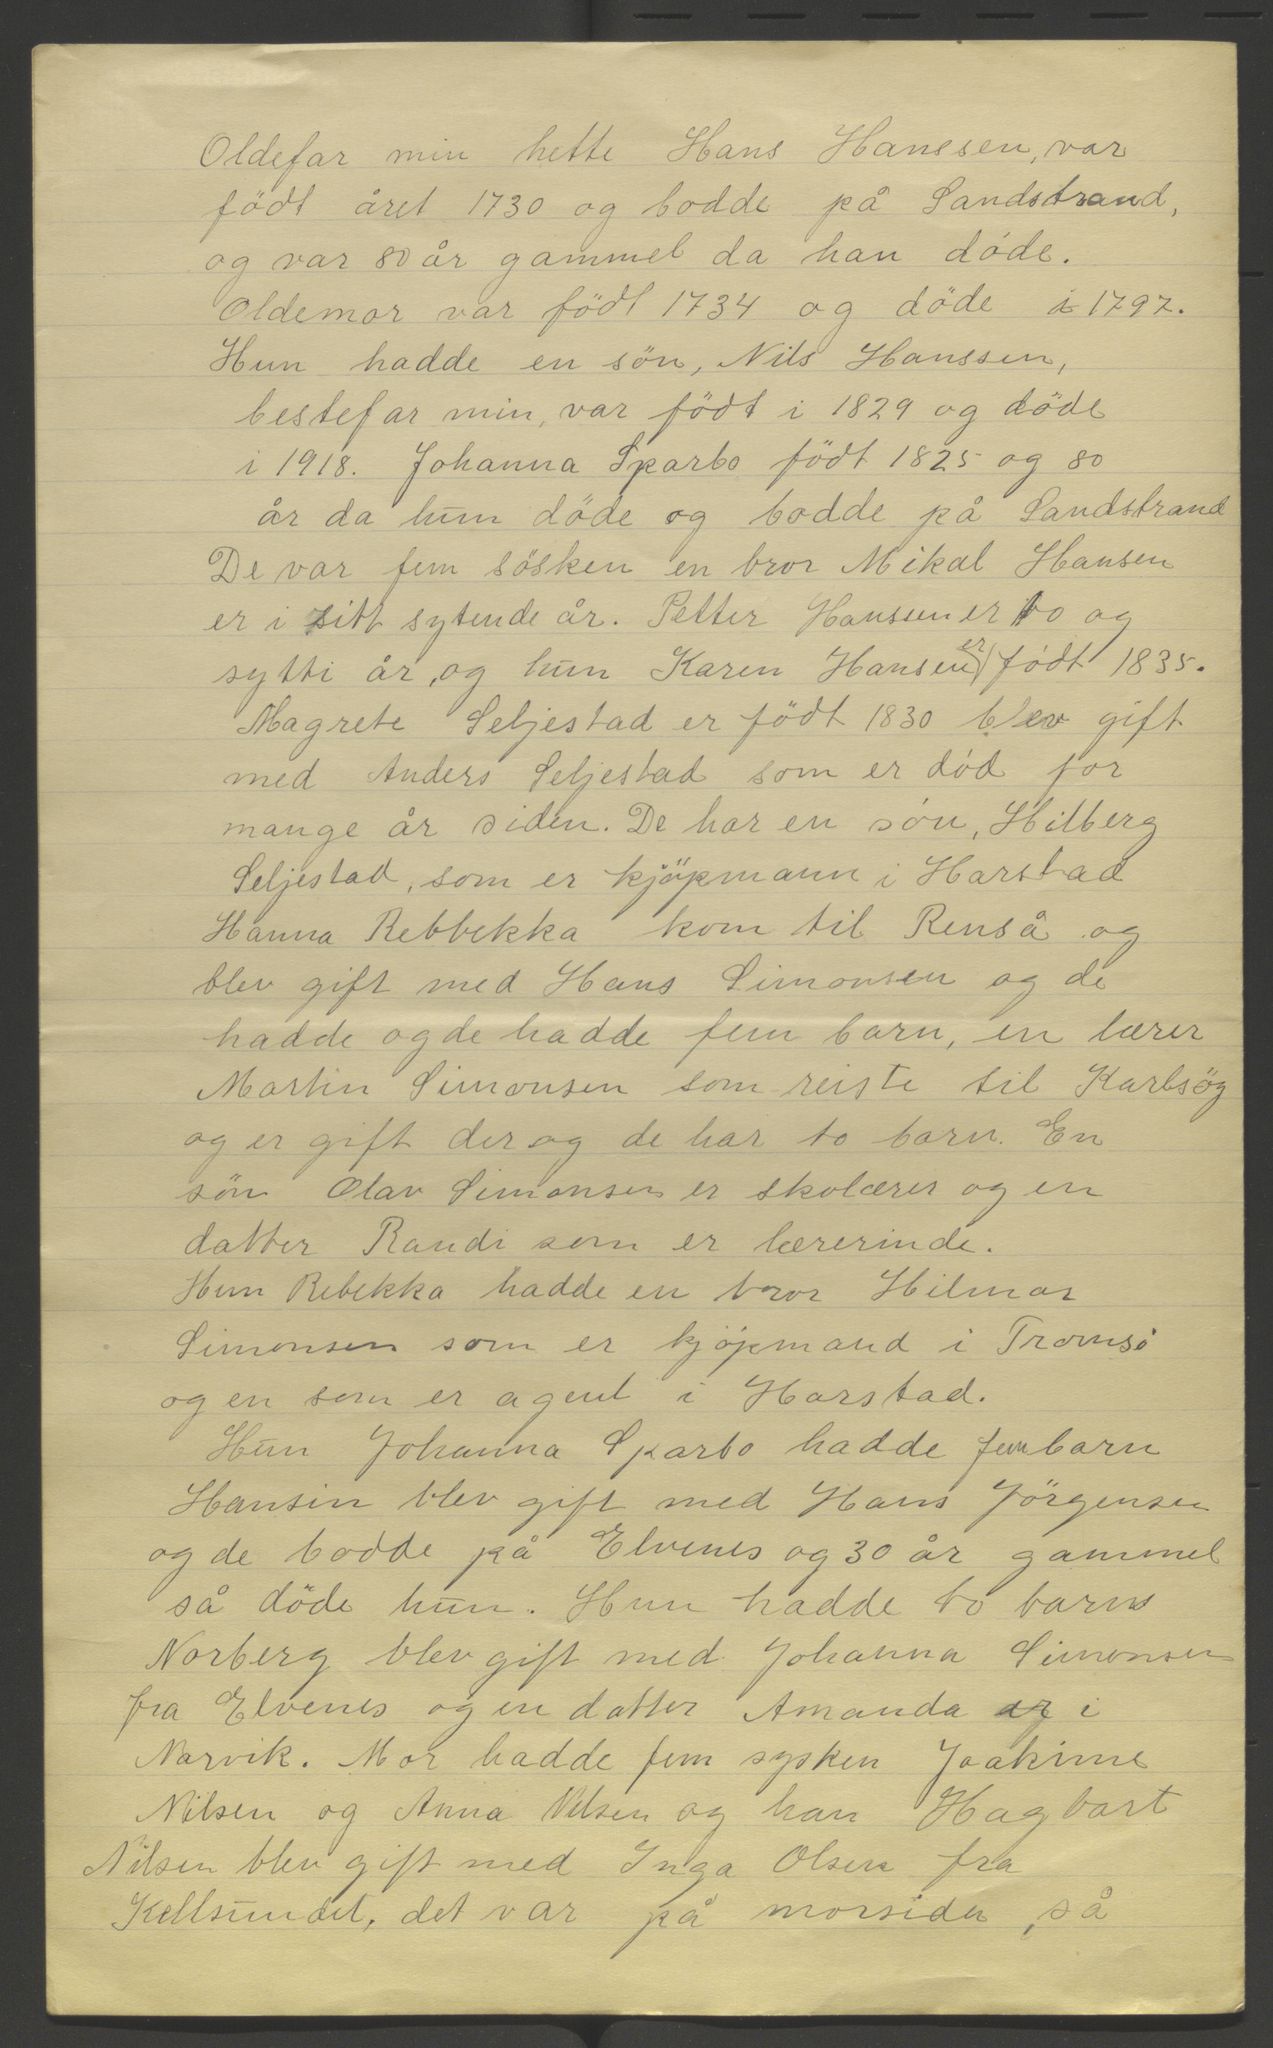 Oldefar min hette Hans Hanssen, var
födt året 1730 og bodde på Sandstrand,
og var 80 år gammel da han döde.
Oldemor var födt 1734 og döde i 1797.
Hun hadde en sön, Nils Hanssen,
bestefar min, var födt i 1829 og döde
i 1918. Johanna Sparbo födt 1825 og 80
år da hun döde og bodde på Sandstrand
De var fem sösken en bror Mikal Hansen
er i sitt sytende år. Petter Hanssen er to og
sytti år, og hun Karen Hansen er födt 1835.
Magrete Seljestad er födt 1830 blev gift
med Anders Seljestad som er död for
mange år siden. De har en sön, Hilberg
Seljestad, som er kjöpmann i Harstad
Hanna Rebbekka kom til Renså og
blev gift med Hans Simonsen og de
hadde og de hadde fem barn, en lærer
Martin Simonsen som reiste til Karlsög
og er gift der og de har to barn. En
sön Olav Simonsen er skolærer og en
datter Randi som er lærerinde.
Hun Rebekka hadde en bror Hilmar
Simonsen som er kjöpmand i Tromsö
og en som er agent i Harstad.
Hun Johanna Sparbo hadde fem barn
Hansin blev gift med Hans Jörgensen
og de bodde på Elvenes og 30 år gammel
så döde hun. Hun hadde to barn
Norberg blev gift med Johanna Simonsen
fra Elvenes og en datter Amanda er i
Narvik. Mor hadde fem sysken Joakime
Nilsen og Anna Nilsen og han Hagbart
Nilsen blev gift med Inga Olsen fra
Kellsundet, det var på morsiden, så